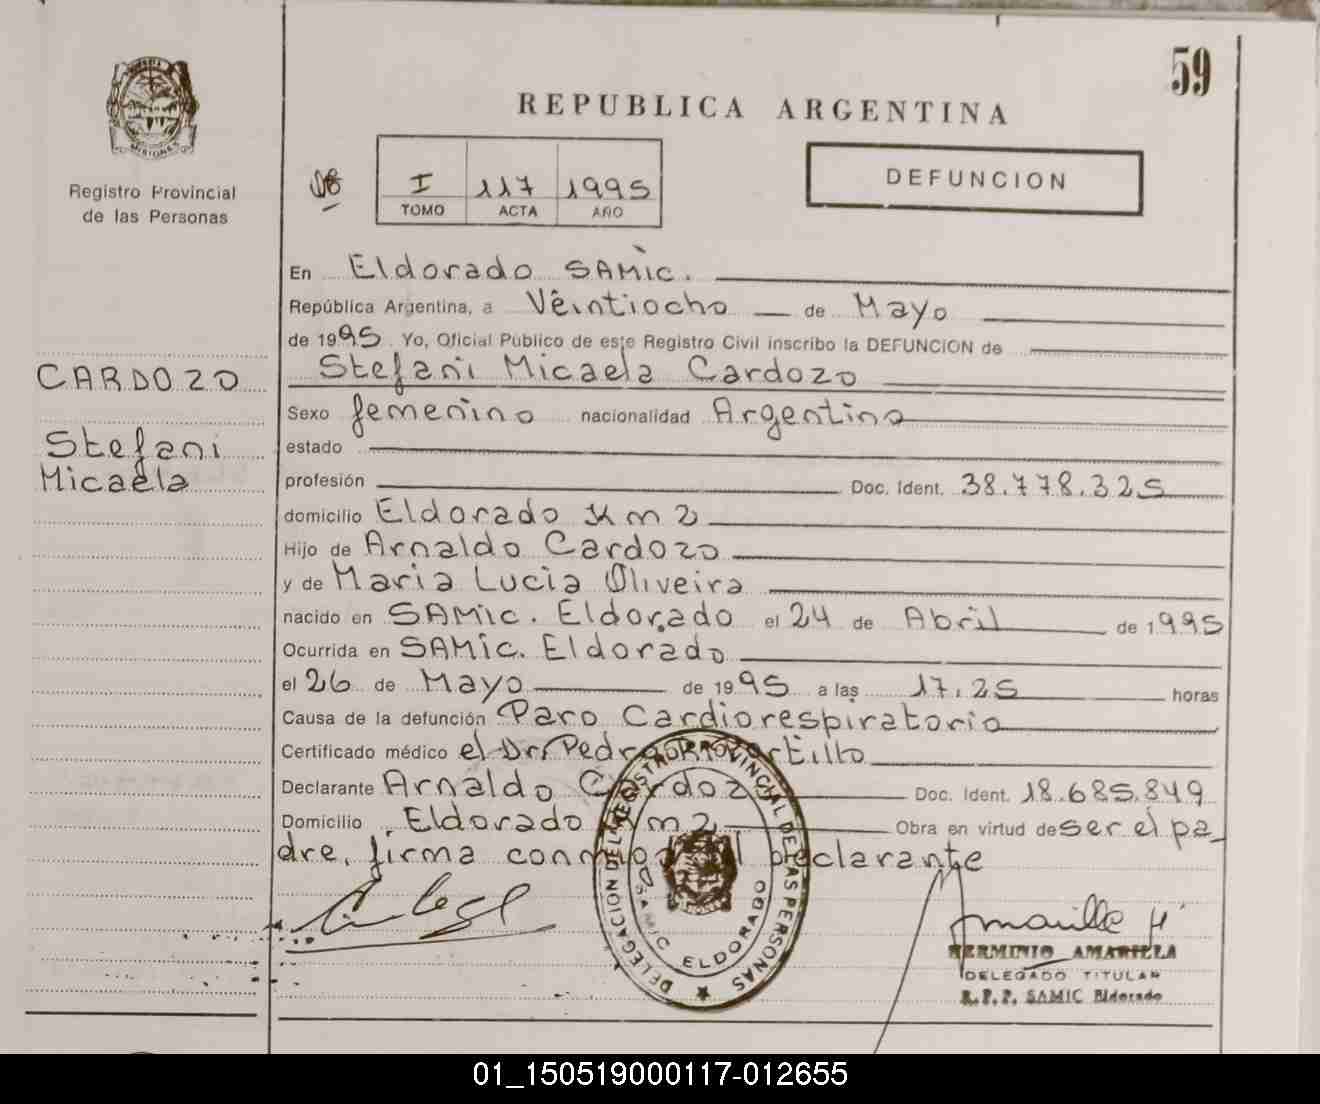 59
REPUBLICA ARGENTINA
MISIONES
Registro Provincial
de las Personas
I 117 1995
TOMO ACTA AÑO
DEFUNCION
En Eldorado SAMIC.
República Argentina, a Veintiocho de Mayo
de 1995. Yo, Oficial Público de este Registro Civil inscribo la DEFUNCION de
CARDOZO
Stefani Micaela Cardozo
Sexo femenino nacionalidad Argentina
Stefani
Micaela
estado
profesión Doc. Ident. 38.778.325
domicilio Eldorado Km 2
Hijo de Arnaldo Cardozo
y de Maria Lucia Oliveira
nacido en SAMIC. Eldorado el 24 de Abril de 1995
Ocurrida en SAMIC. Eldorado
el 26 de Mayo de 1995 a las 17.25 horas
Causa de la defunción Paro Cardiorespiratorio
Certificado médico el Dr. Pedro
Declarante Arnaldo Cardozo Doc. Ident. 18.685.849
Domicilio Eldorado Km 2 Obra en virtud de ser el pa_
dre, firma conmigo el declarante
DELEGACION DEL REGISTRO PROVINCIAL DE LAS PERSONAS
SAMIC ELDORADO
HERMINIO AMARILLA
DELEGADO TITULAR
R.P.P. SAMIC Eldorado
01_150519000117-012655